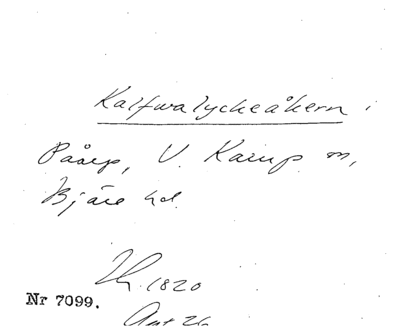 Kalfwalyckeåkern i
Påarp, V. Karup sn,
Bjäre hd.
1820
Nr 7099.